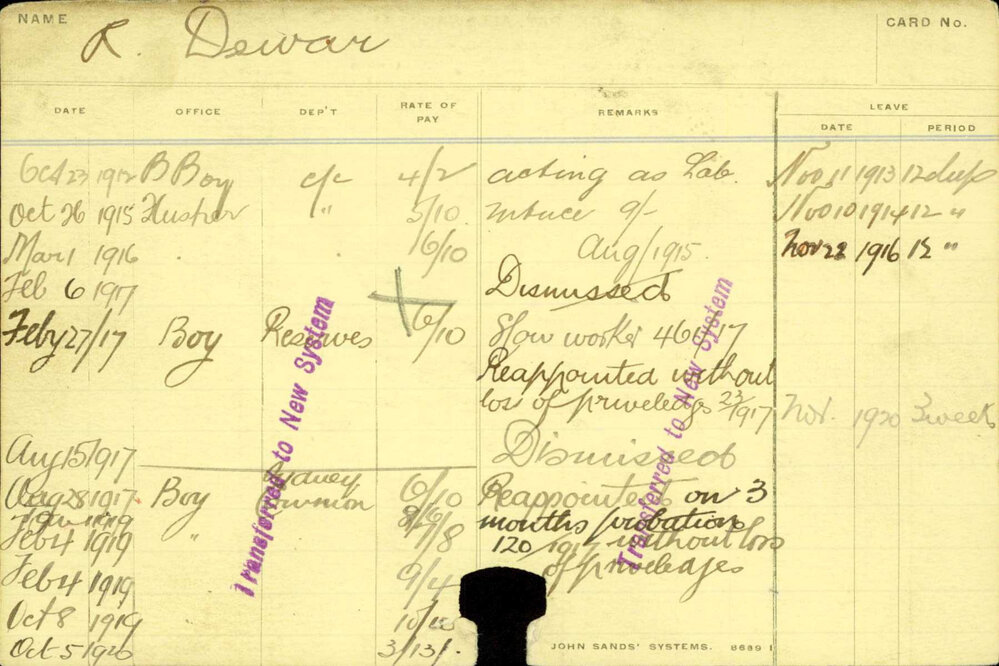 NAME
CARD No.
R. Dewar
DATE OFFICE DEP'T RATE OF PAY REMARKS LEAVE
DATE PERIOD
Oct 23 1912 B Boy c/c 4/2 acting as Lab. Nov 11 1913 12 days
Oct 26 1915 " 5/10 9/- Nov 10 1914 12 "
Mar 1 1916 6/10 Aug/1915. Nov 22 1916 12 "
Feb 6 1917 Dismissed
Feby 27/17 Boy Reserves 6/10 Slow worker 17
Reappointed without
loss of priveledges 23/1917 Nov. 1920 3 weeks
Aug 15 1917 Dismissed
Aug 28 1917 Boy Sydney 6/10 Reappointed on 3
1919 months probation
Feb 4 1919 " /8 120/1917 without loss
Feb 4 1919 9/4 of priveledges
Oct 8 1919
Oct 5 1920 3/13/-
Transferred to New System
Transferred to New System
JOHN SANDS' SYSTEMS. 8689